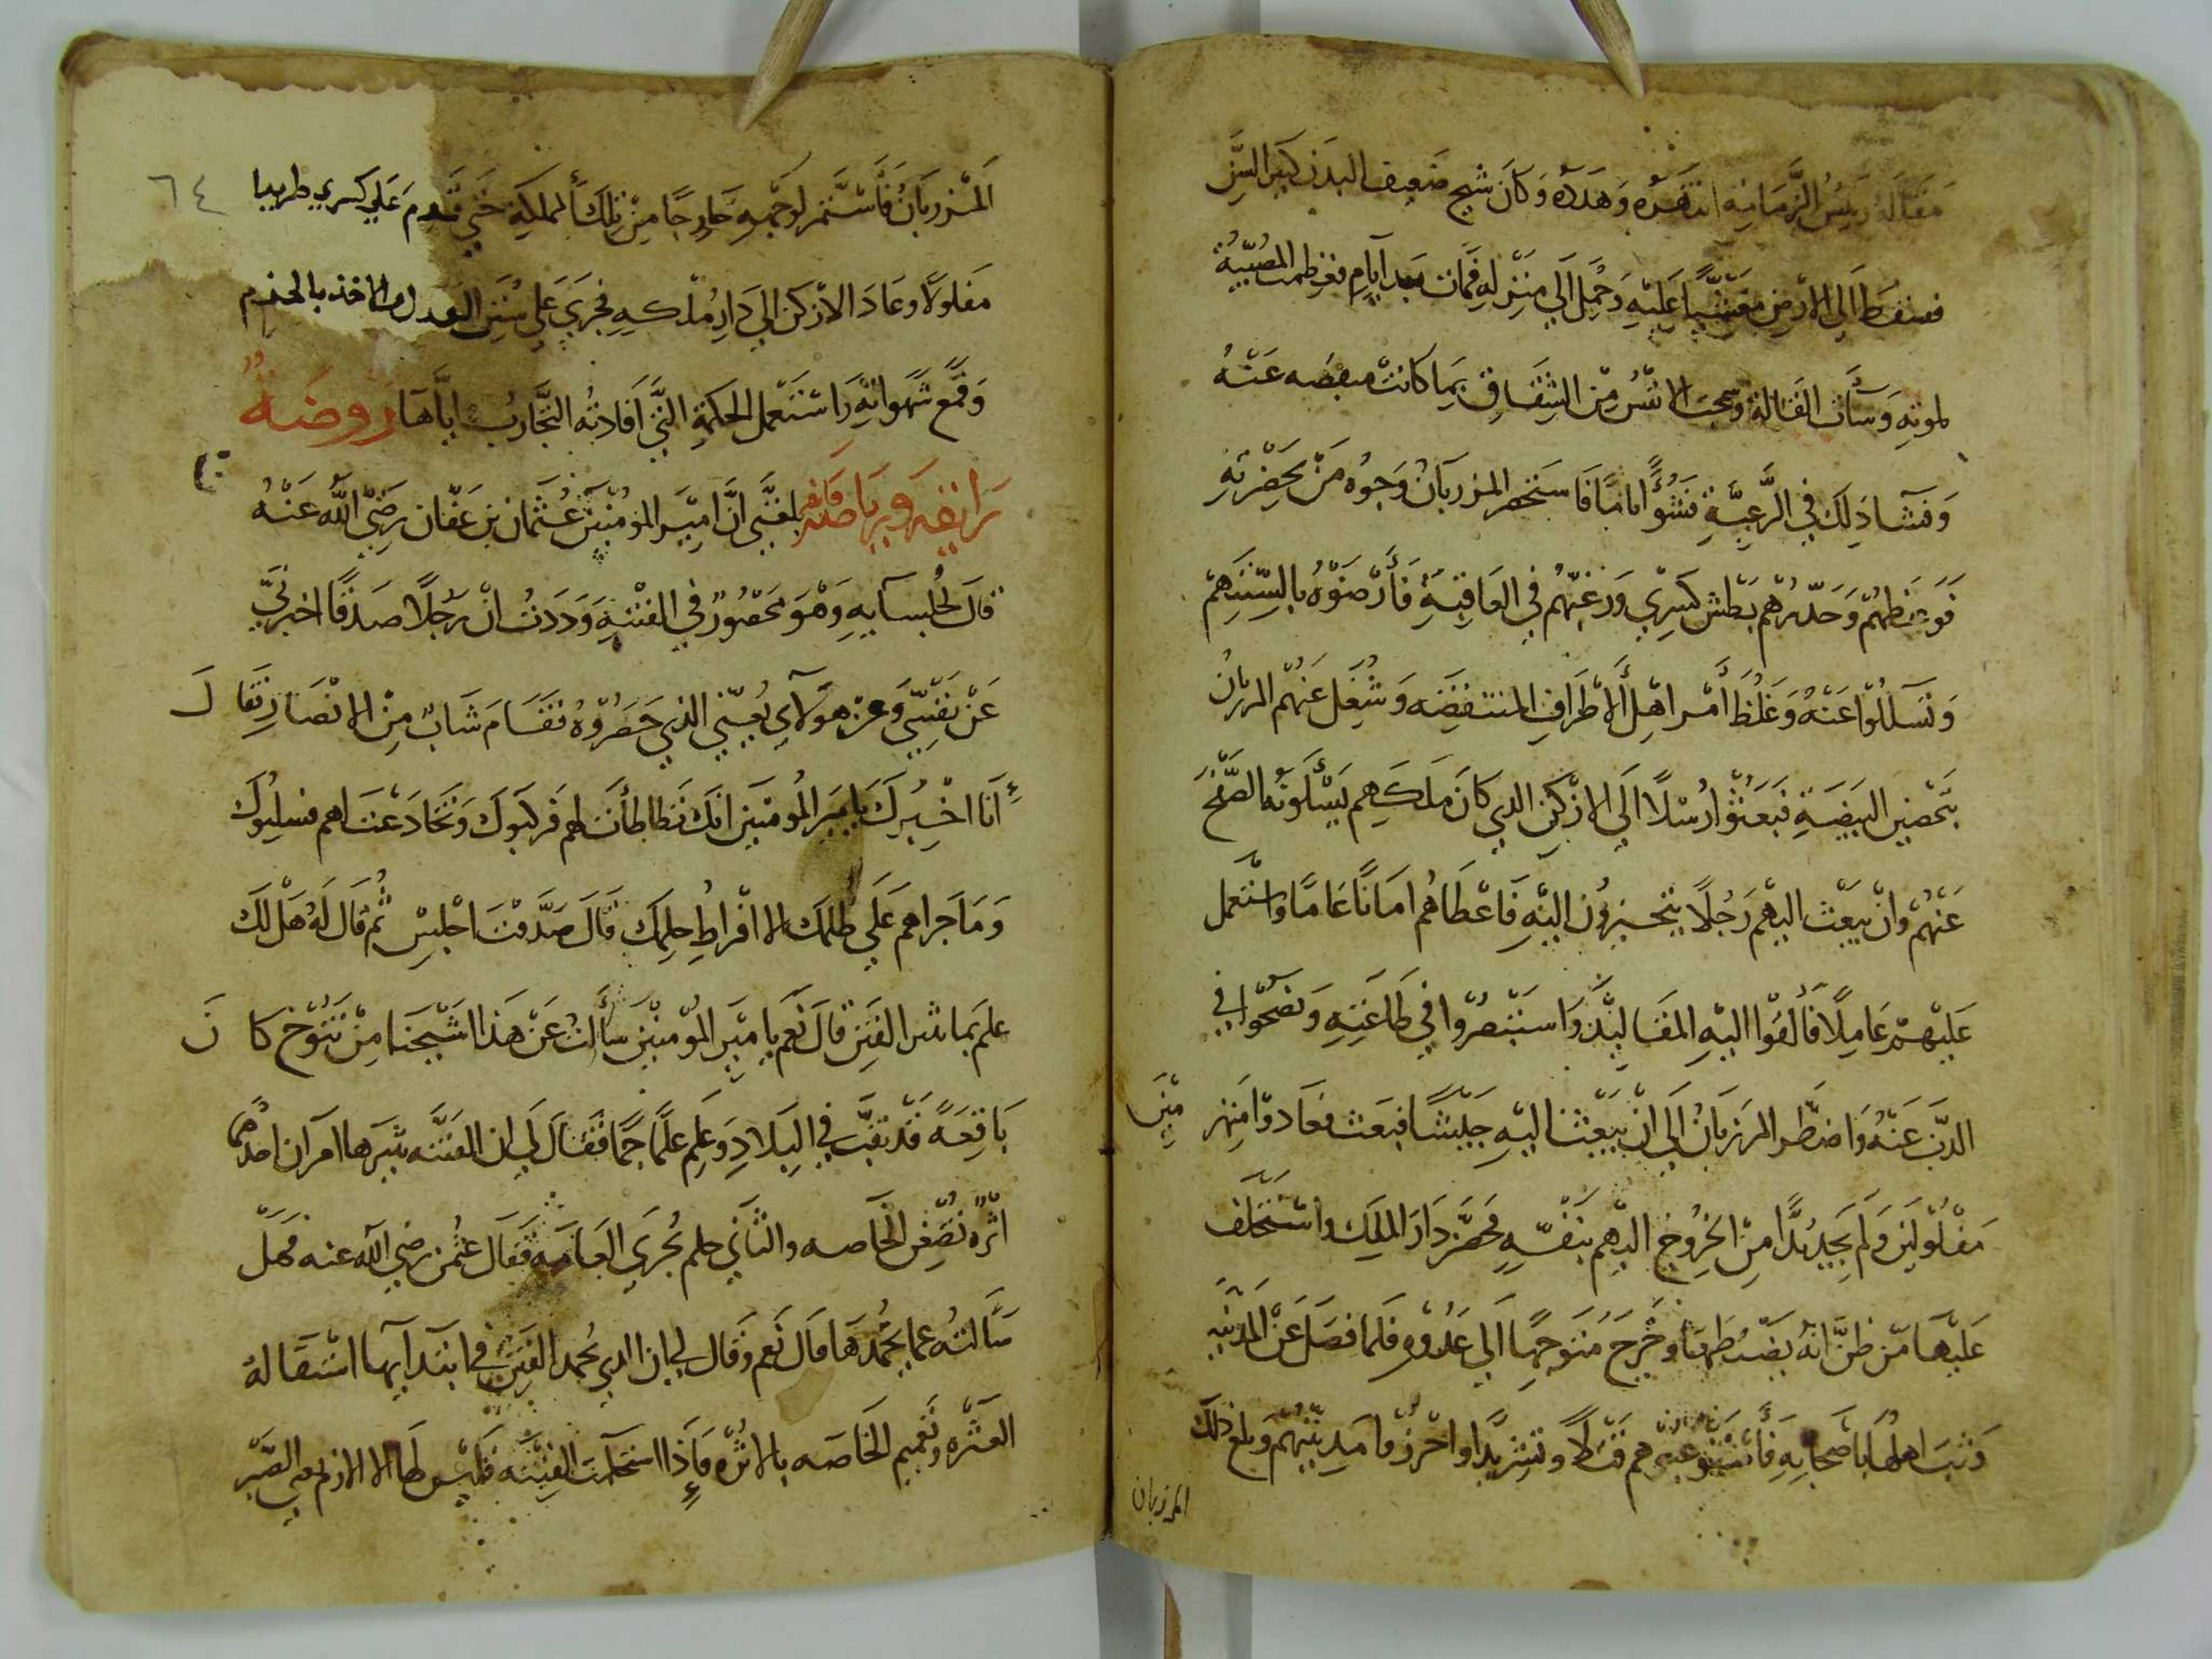 مقالة رئيس الزمازمة انتهره وهدده وكان شيخ ضعيف البدن كبير السن
فسقط الى الارض مغشيا عليه وحمل الى منزله فمات بعد ايام فعظمت المصيبة
لموته وسآت القالة وسحت الانفس من الشقاق بما كانت منقبضه عنه
وفشا ذلك في الرعية فشوا اماما فاستحضر المزربان وجوه من بحضرته
فوعظهم وحذرهم بطش كسرى ورغبهم في العاقبة فأرضوه بالسنتهم
وتسللوا عنه وغلظ أمر اهل الاطراف المنتقضه وشغل عنهم المرزبان
بتحصين البيضة فبعثوا رسلا الى الازكن الذي كان ملكهم يسألونه الصفح
عنهم وان يبعث اليهم رجلا يتحيزون اليه فاعطاهم امانا عاما واستعمل
عليهم عاملا فالقوا اليه المقاليد واستبصروا في طاعته ونصحوا في
الذب عنه واضطر المرزبان الى ان يبعث اليه جيشا فبعث فعادوا منهزمين
مفلولين ولم يجد بدا من الخروج اليهم بنفسه فحصن دار الملك واستخلف
عليها من ظن انه يضبطها وخرج متوجها الى عدوه فلما فصل عن المدينه
وثب اهلها باصحابه فأثخنوا هم قتلا وتشريدا واحرزوا مدينتهم وبلغ ذلك
المرزبان
٦٤
المزربان فأستمر لوجهه خارجا من تلك المملكة حتى قدم على كسرى طريدا
مفلولا وعاد الازكن الى دار ملكه فجرى على سنن العدل والاخذ بالحزم
وقمع شهواته واستعمل الحكمة التي افادته التجارب اياها روضة
رائقه ورياضة فائقه بلغني ان امير المؤمنين عثمان بن عفان رضي الله عنه
قال لجلسايه وهو محصور في الفتنه وددت ان رجلا صدقا اخبرني
عن نفسي وعن هولاي يعني الذين حصروه فقام شاب من الانصار فقال
انا اخبرك يا امير المومنين انك تطاطأت لهم فركبوك وتخادعت لهم فسلبوك
وما جراهم على ظلمك الا افراط حلمك قال صدقت اجلس ثم قال له هل لك
علم بما شر الفتن قال نعم يا امير المؤمنين سألت عن هذا شيخا من تنوخ كان
باقعة قد نقب في البلاد وعلم علما جما فقال لي ان الفتنه يثيرها امران احدهما
اثره تضغن الخاصه والثاني حلم يجرى العامه فقال عثمن رضي الله عنه فهل
سألته عما يخمدها قال نعم وقال لي ان الذي يخمد الفتن في ابتدآيها استقالة
العثره وتعميم الخاصه بالاثره فإذا استحكمت الفتنه فليس لها الا الازم وهي الصبر